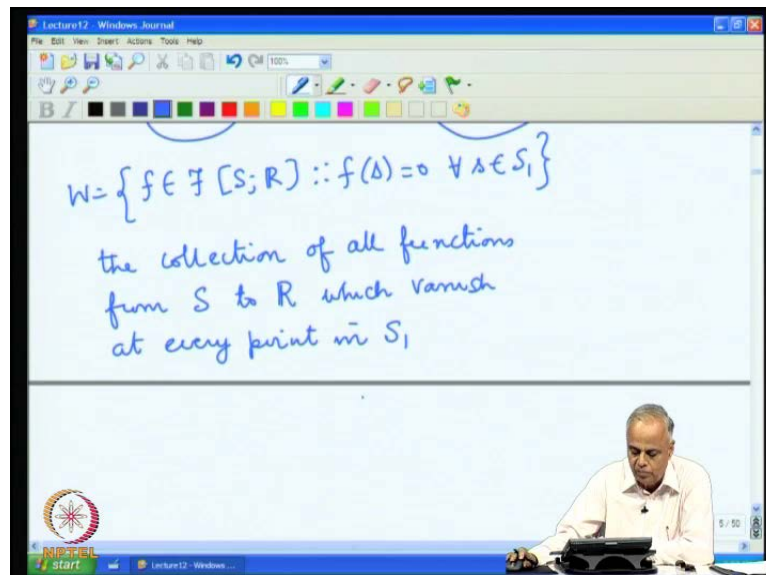 Lecture12 - Windows Journal
File Edit View Insert Actions Tools Help
100%
B I
W = { f ∈ F [S; R] :: f(s) = 0 ∀ s ∈ S₁ }
the collection of all functions
from S to R which vanish
at every point in S₁
5 / 50
NPTEL
start Lecture12 - Windows ...